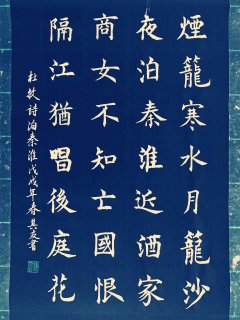 煙籠寒水月籠沙
夜泊秦淮近酒家
商女不知亡國恨
隔江猶唱後庭花
杜牧詩泊秦淮戊戌年春其友書